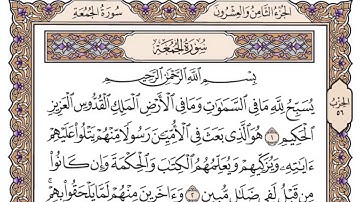 الجزء الثامن والعشرون
سورة الجمعة
سورة الجمعة
بِسْمِ ٱللَّهِ ٱلرَّحْمَٰنِ ٱلرَّحِيمِ
يُسَبِّحُ لِلَّهِ مَا فِي ٱلسَّمَٰوَٰتِ وَمَا فِي ٱلْأَرْضِ ٱلْمَلِكِ ٱلْقُدُّوسِ ٱلْعَزِيزِ
ٱلْحَكِيمِ ١ هُوَ ٱلَّذِي بَعَثَ فِي ٱلْأُمِّيِّـۧنَ رَسُولًا مِّنْهُمْ يَتْلُوا۟ عَلَيْهِمْ
ءَايَٰتِهِۦ وَيُزَكِّيهِمْ وَيُعَلِّمُهُمُ ٱلْكِتَٰبَ وَٱلْحِكْمَةَ وَإِن كَانُوا۟
مِن قَبْلُ لَفِي ضَلَٰلٍ مُّبِينٍ ٢ وَءَاخَرِينَ مِنْهُمْ لَمَّا يَلْحَقُوا۟ بِهِمْ
الحزب
٥٦